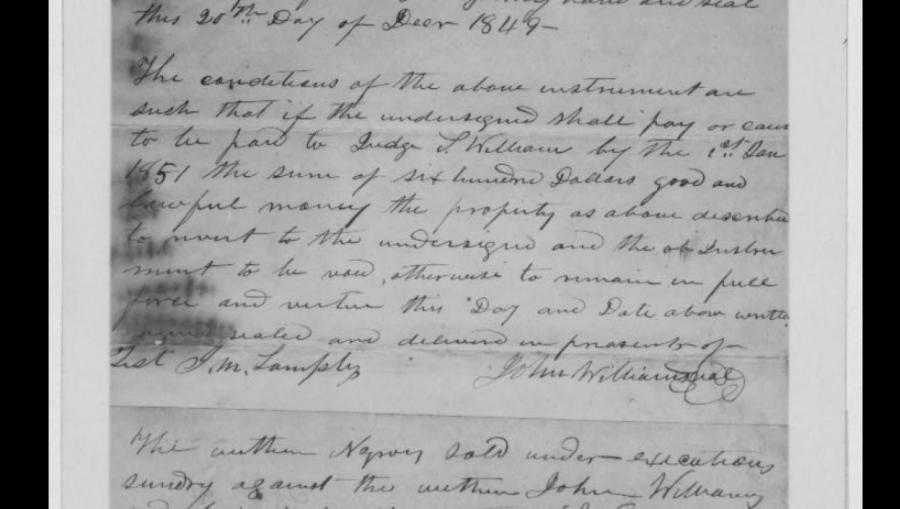 this 20th Day of Decr 1849—
The conditions of the above instrument are
such that if the undersigned shall pay or caus
to be paid to Judge S. William by the 1st Jan
1851 the sum of six hundred Dollars good and
lawful money the property as above describe
to revert to the undersigned and the ab Instru
ment to be void, otherwise to remain in full
force and virtue this Day and Date above writte
sealed and delivered in presents of
Test J. M. Lampley John Williams seal
The within Negroes sold under executions
sundry against the within John Williams